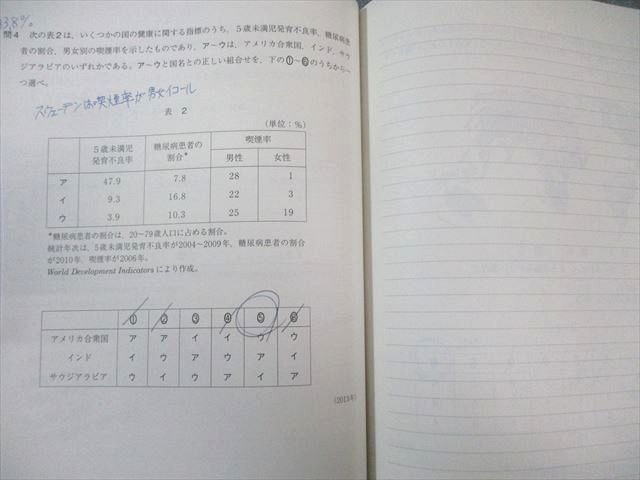 33.8%
問4 次の表2は、いくつかの国の健康に関する指標のうち、5歳未満児発育不良率、糖尿病患
者の割合、男女別の喫煙率を示したものであり、ア〜ウは、アメリカ合衆国、インド、サウ
ジアラビアのいずれかである。ア〜ウと国名との正しい組合せを、下の①〜⑥のうちから一
つ選べ。
スウェーデンは喫煙率が男女イコール
表 2
(単位:%)
5歳未満児発育不良率 糖尿病患者の割合* 喫煙率
男性 女性
ア 47.9 7.8 28 1
イ 9.3 16.8 22 3
ウ 3.9 10.3 25 19
*糖尿病患者の割合は、20〜79歳人口に占める割合。
統計年次は、5歳未満児発育不良率が2004〜2009年、糖尿病患者の割合
が2010年、喫煙率が2006年。
World Development Indicators により作成。
① ② ③ ④ ⑤ ⑥
アメリカ合衆国 ア ア イ イ ウ ウ
インド イ ウ ア ウ ア イ
サウジアラビア ウ イ ウ ア イ ア
(2013年